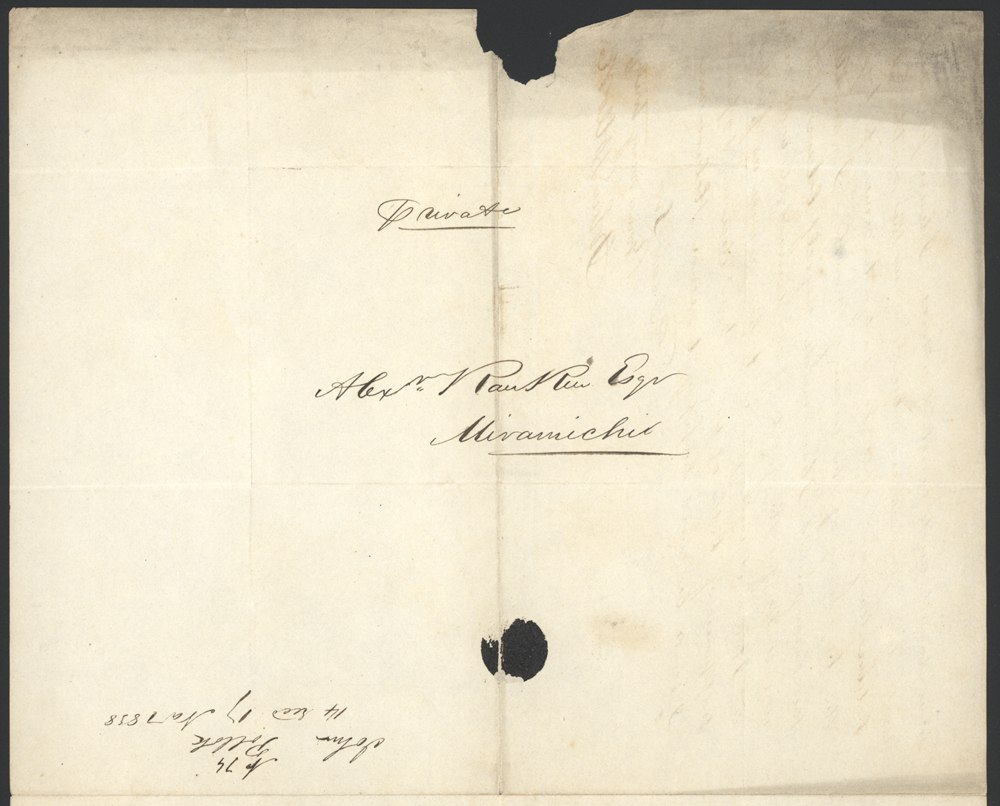 Private
Alexr Rankin Esqr
Miramichi
No 74
John Pollok
14 recd 17 Nov 1838